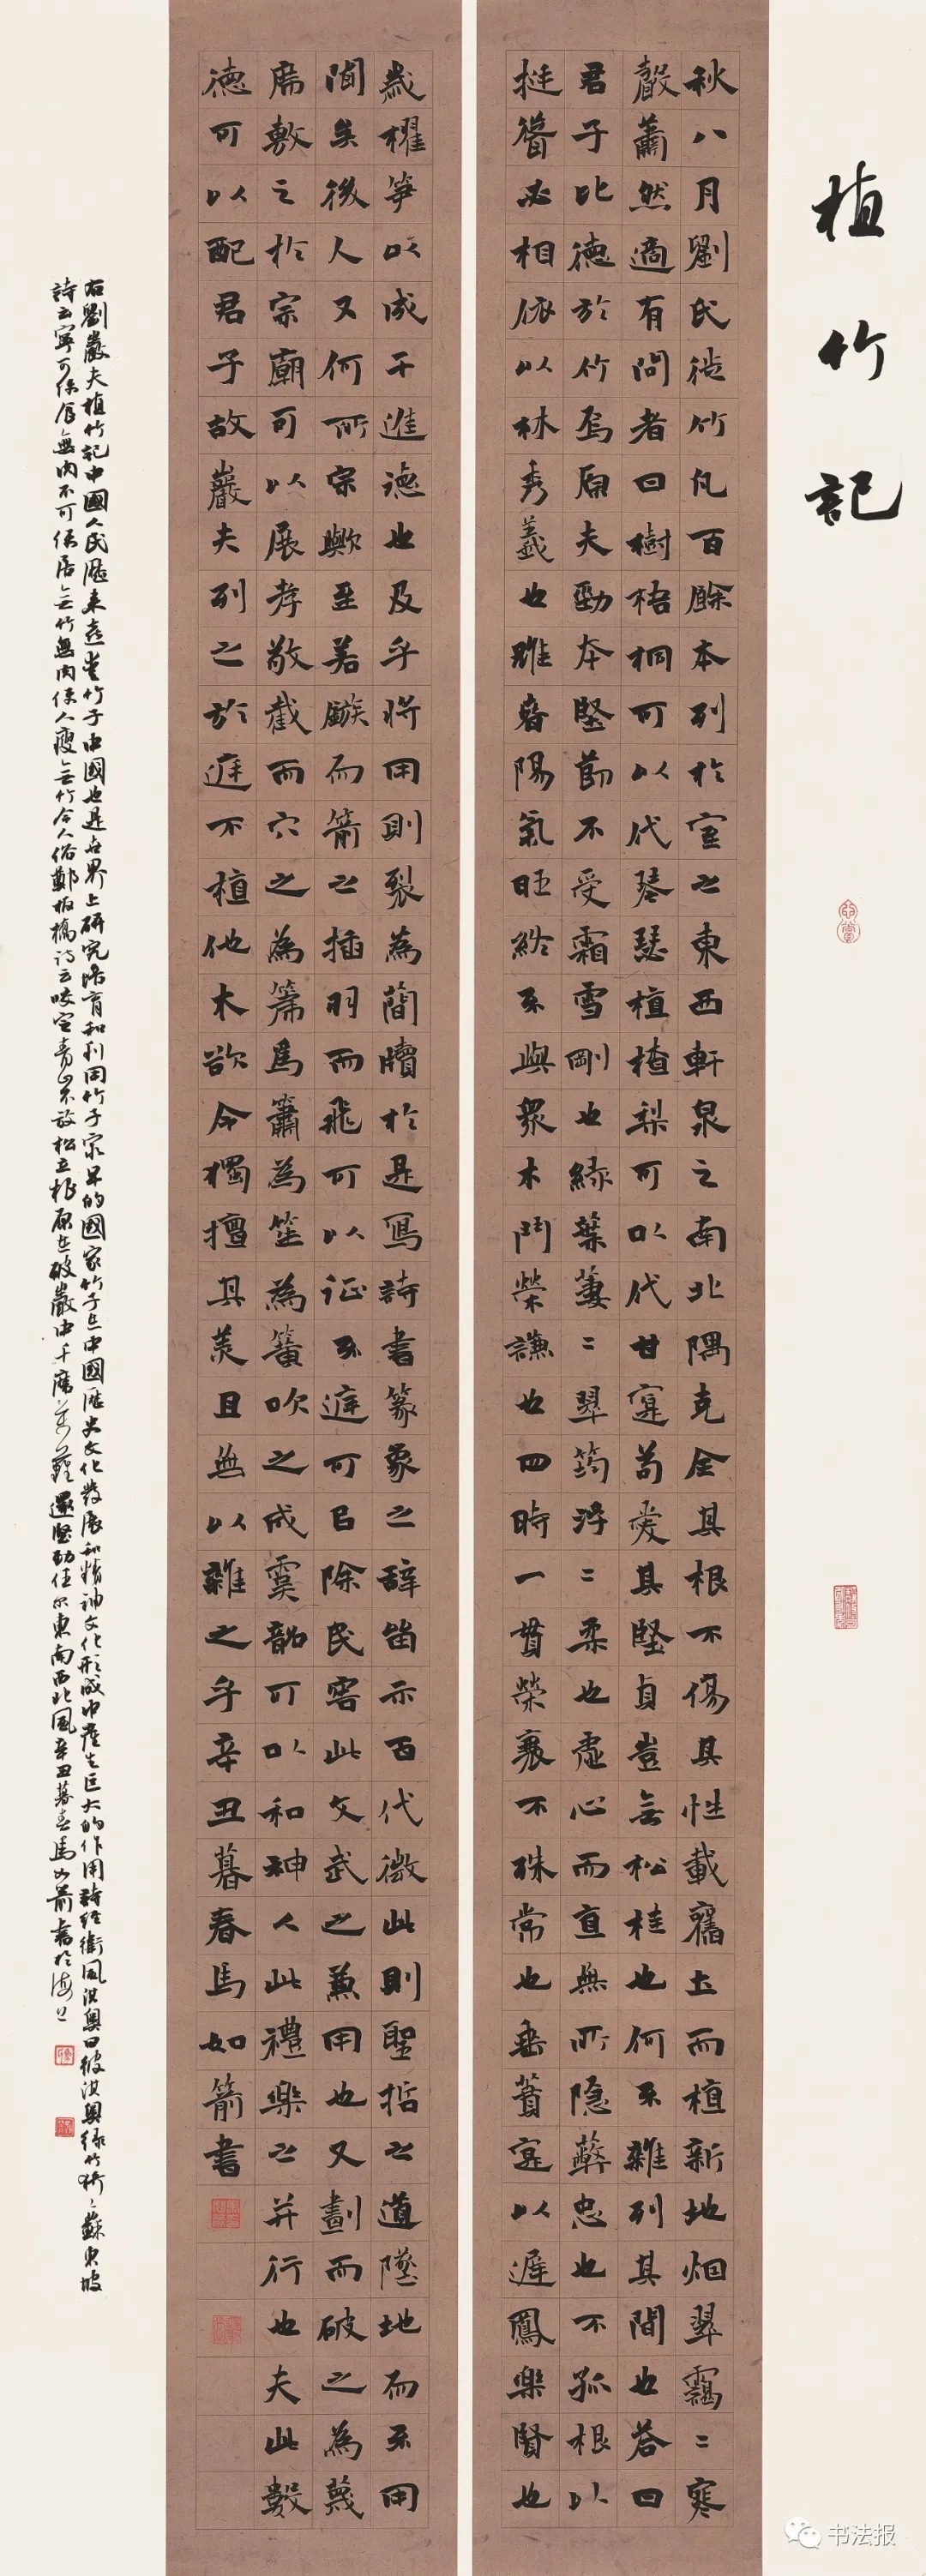 植竹記
秋八月劉氏徙竹凡百餘本列於室之東西軒泉之南北隅克全其根不傷其性載舊土而植新地烟翠靄二寒
聲蕭然適有問者曰樹梧桐可以代琴瑟植楂梨可以代甘寔苟愛其堅貞豈無松桂也何不雜列其間也答曰
君子比德於竹焉原夫勁本堅節不受霜雪剛也緑葉萋二翠筠浮二柔也虛心而直無所隐蔽忠也不孤根以
挺聳必相依以林秀義也雖春陽氣旺終不與衆木鬥榮謙也四時一貫榮衰不殊常也垂蕡寔以遲鳳樂賢也
歲擢筍以成干進德也及乎將用則裂為蕳牘於是寫詩書篆象之辭留示百代微此則聖哲之道墜地而不用
聞矣後人又何所宗歟至若鏃而箭之插羽而飛可以征不庭可以除民害此文武之兼用也又劃而破之為篾
席敷之於宗廟可以展孝敬截而穴之為箎爲簫為笙為簧吹之成虞韶可以和神人此禮樂之并行也夫此數
德可以配君子故巖夫列之於庭不植他木欲令獨擅其美且無以雜之乎辛丑暮春馬如箭書
右劉巖夫植竹記中國人民歷來喜愛竹子中國也是世界上研究培育和利用竹子最早的國家竹子在中國歷史文化發展和精神文化形成中產生巨大的作用詩經衛風淇奥曰彼淇奥緑竹猗猗蘇東坡
詩云寧可食無肉不可居無竹無肉使人瘦無竹令人俗鄭板橋詩云咬定青山不放松立根原在破巖中千磨萬擊還堅勁任尔東南西北風辛丑暮春馬如箭書於海上
书法报